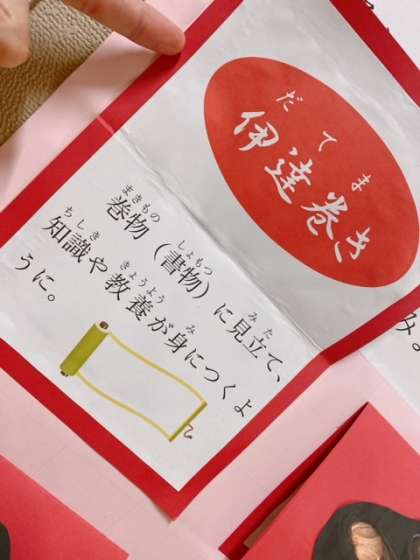 だてま
伊達巻き
まきもの しょもつ みた
巻物（書物）に見立て、
ちしき きょうよう み
知識や教養が身につくよ
うに。